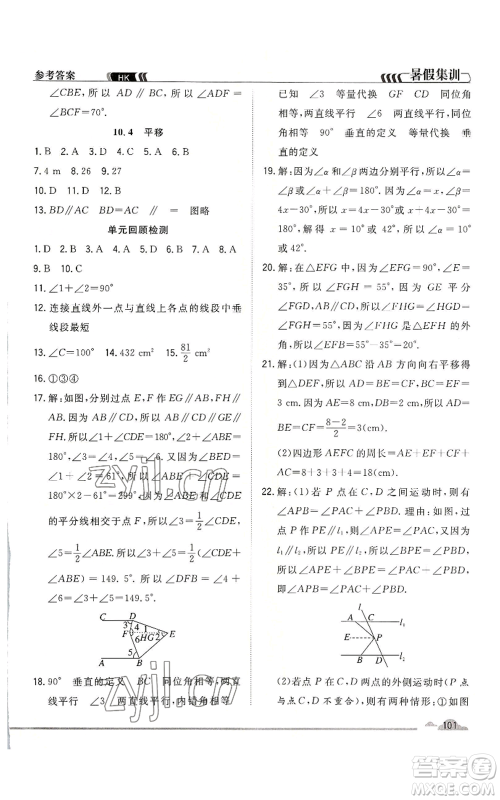 参考答案
HK
暑假集训
∠CBE，所以∠ABF=∠CBE，所以
∠ABC=∠BCF=70°.
10.4 平移
1. B 2. A 3. D 4. C 5. B 6. B
7. 4 m 8. 26 9. 27
10. D 11. D 12. A
13. BD∥AC BD=AC 图略
单元回顾检测
1. D 2. B 3. C 4. D 5. B 6. A 7. D 8. A
9. B 10. C 11. ∠1+∠2=90°
12. 连接直线外一点与直线上各点的线段中垂
线段最短
13. ∠C=100° 14. 432 cm² 15. 81/2 cm²
16. ①③④
17. 解：如图，分别过点 E，F 作 EG∥AB，FH∥
AB. 因为 AB∥CD，所以 AB∥CD∥GE∥
FH，所以∠3=∠4，∠5=∠6，∠1+
∠ABE=180°，∠2+∠CDE=180°. 因为
∠1+∠2=61°，所以∠ABE+∠CDE=
180°×2-61°=299°. 因为∠ABE 和∠CDE
的平分线相交于点 F，所以∠3=1/2∠CDE，
∠5=1/2∠ABE，所以∠3+∠5=1/2(∠CDE+
∠ABE)=149.5°. 所以∠DFB=∠4+
∠6=∠3+∠5=149.5°.
C D
3 4 1
F HG E
6 2
5
A B
18. 90° 垂直的定义 BC 同位角相等，两直
线平行 ∠3 两直线平行，内错角相等
已知 ∠3 等量代换 GF CD 同位角
相等，两直线平行 ∠6 两直线平行，同位
角相等 90° 垂直的定义 等量代换 垂
直的定义
19. 解：因为∠α和∠β的两边分别平行，所以∠α=
∠β或∠α+∠β=180°. 因为∠α=x，∠β=
4x-30°，所以 x=4x-30°或 x+4x-30°=
180°，所以 x=10°或 x=42°，所以∠α=10°
或 42°.
20. 解：因为∠EFG=90°，∠E=35°，所以
∠FGH=55°. 因为 GE 平分∠FGD，
AB∥CD，所以∠FHG=∠HGD=
∠FGH=55°. 因为∠FHG=∠E+
∠EFB，所以∠EFB=55°-35°=20°.
21. 解：(1)因为△ABC 沿 AB 方向向右平移得
到△DEF，所以 AD=BE=CF，BC=EF=
3 cm. 因为 AE=8 cm，DB=2 cm，所以
BE=CF=8-2/2=3(cm).
(2)四边形 AEFC 的周长=AE+EF+CF+
AC=8+3+3+4=18(cm).
22. 解：(1)若 P 点在 C，D 之间运动时，则有
∠APB=∠PAC+∠PBD. 理由：如图，过
点 P 作 PE∥l₁，所以∠APE=∠PAC. 因
为 l₁∥l₂，所以 PE∥l₂，所以∠BPE=∠PBD，
所以∠APB=∠APE+∠BPE=∠PAC+
∠PBD，即∠APB=∠PAC+∠PBD.
A C l₁
E P
B D l₂
(2)若点 P 在 C，D 两点的外侧运动时(P 点
与点 C，D 不重合)，则有两种情形：①如图
101
zyjl.cn
zyjl.cn